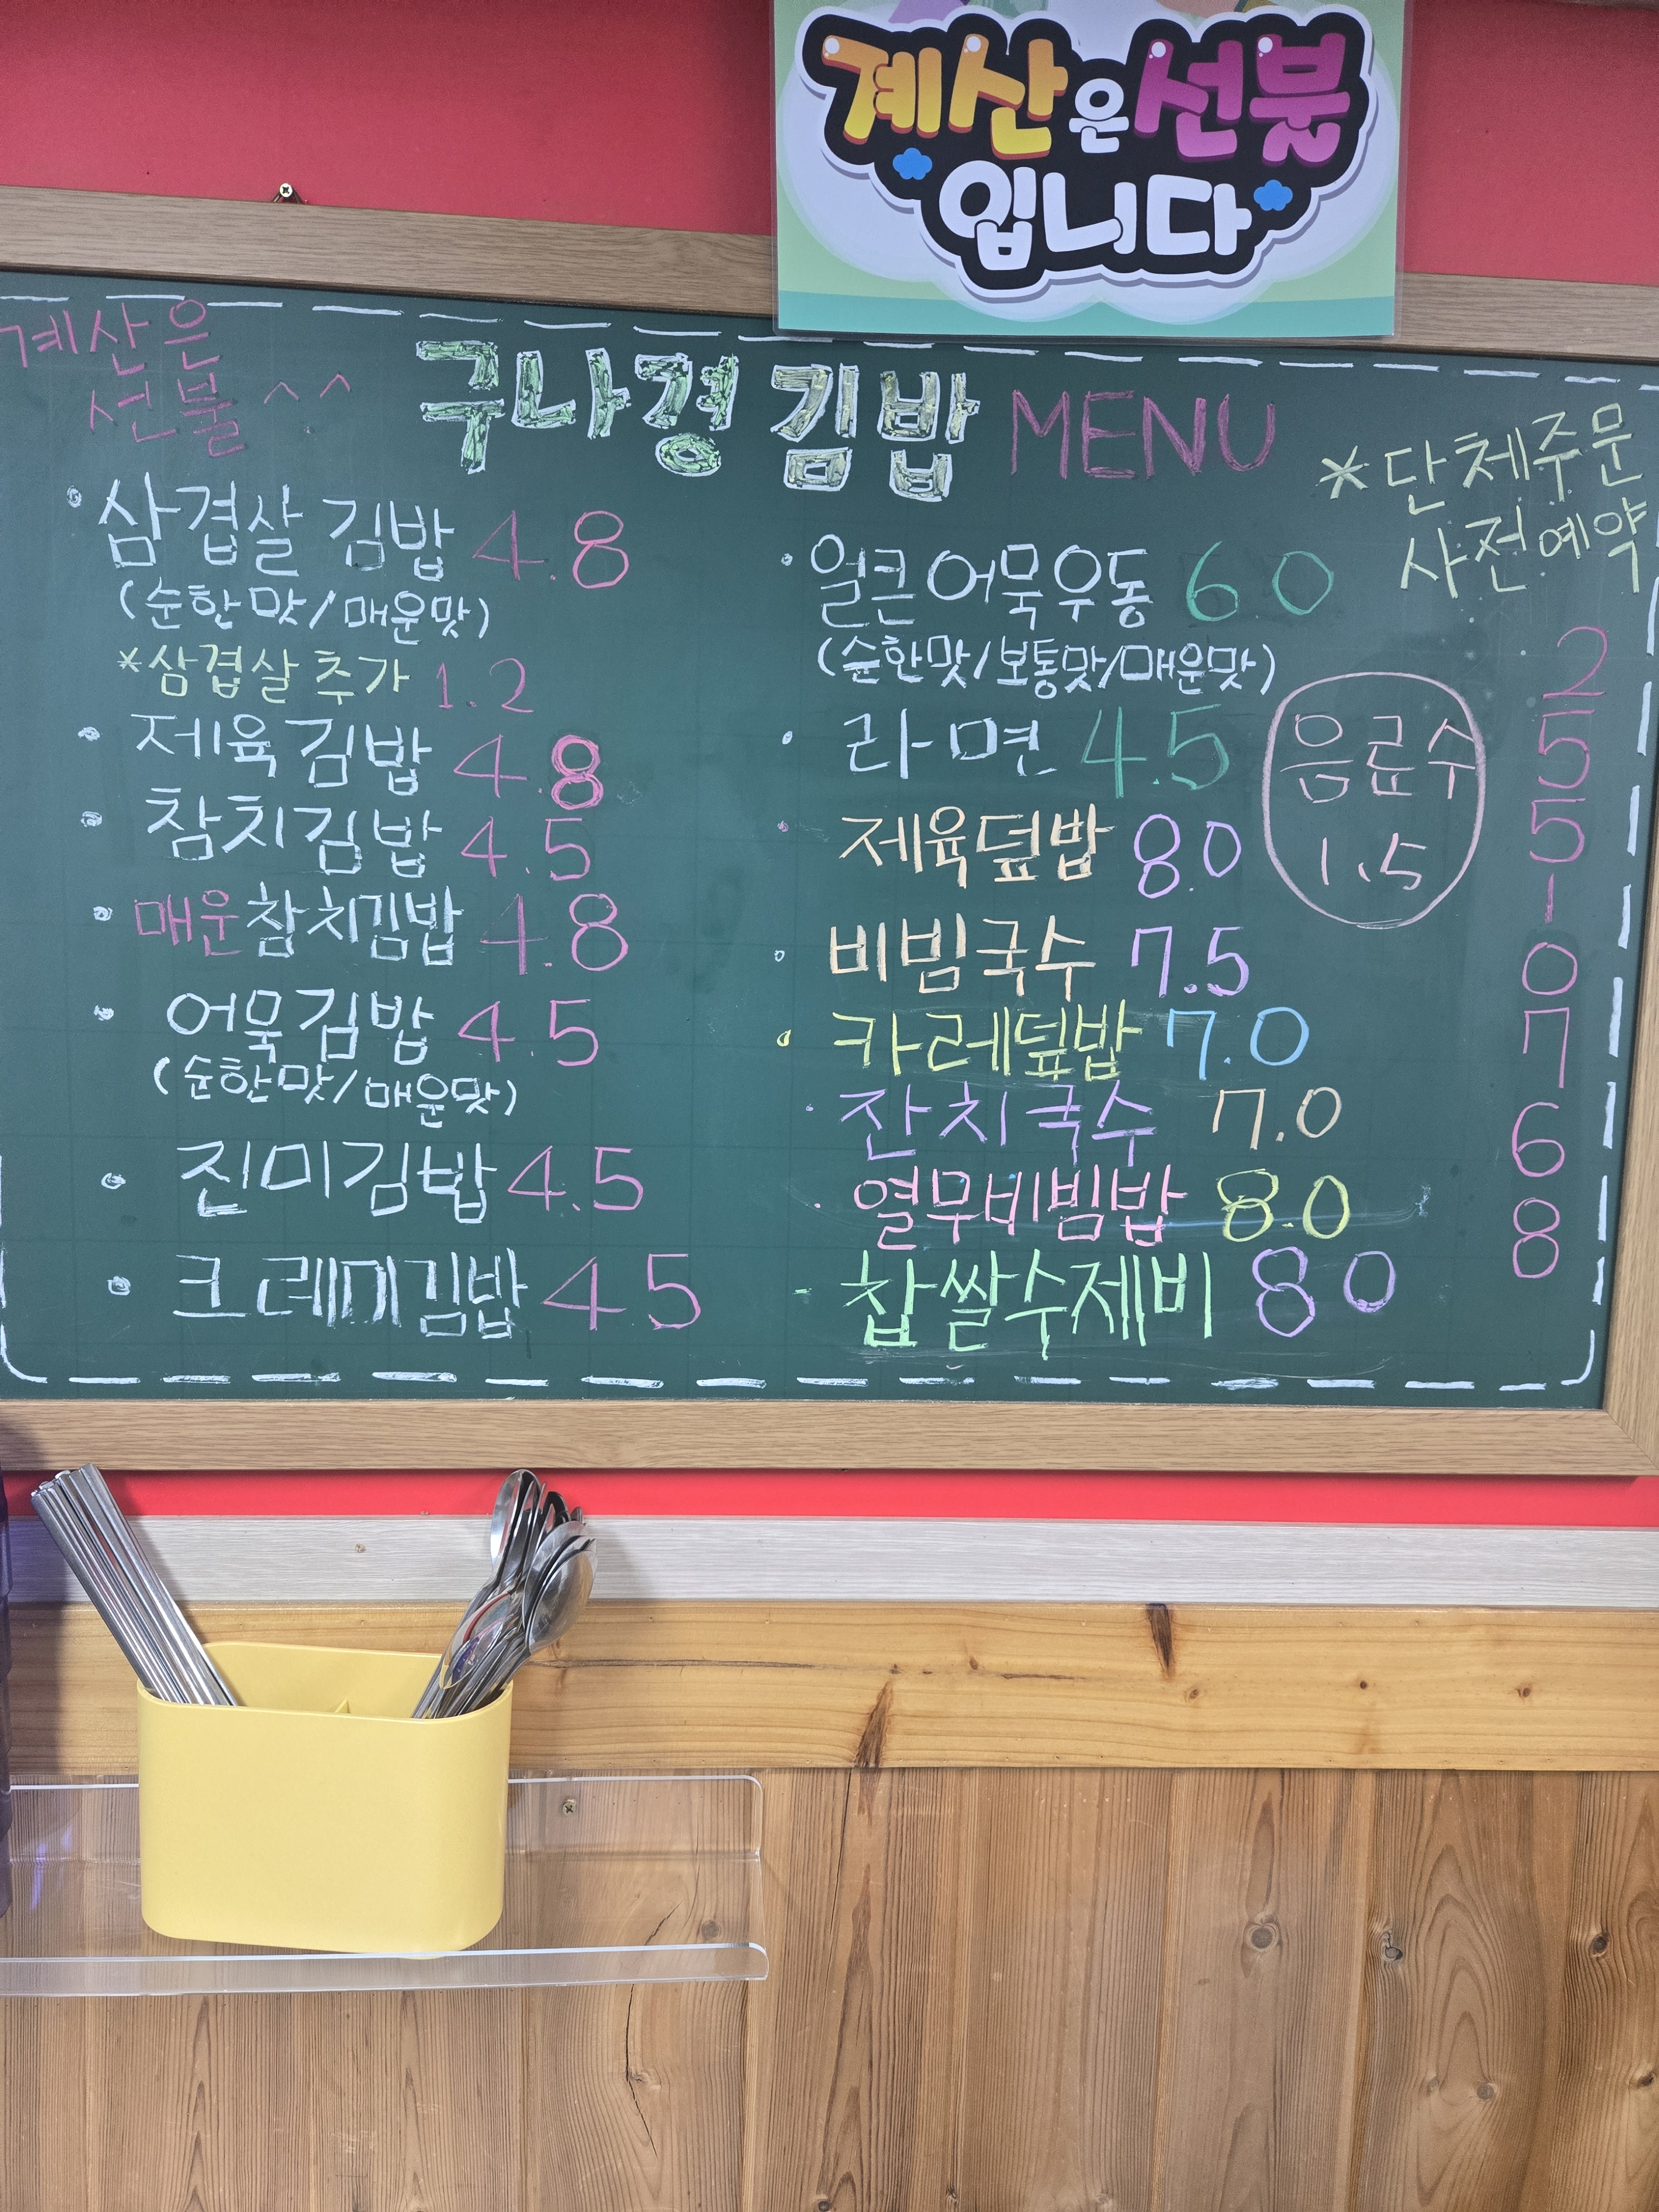 계산은선불
입니다
계산은
선불 ^^
구나경 김밥 MENU
*단체주문
사전예약
• 삼겹살 김밥 4.8
(순한맛/매운맛)
*삼겹살 추가 1.2
• 제육 김밥 4.8
• 참치김밥 4.5
• 매운참치김밥 4.8
• 어묵김밥 4.5
(순한맛/매운맛)
• 진미김밥 4.5
• 크레미김밥 4.5
• 얼큰어묵우동 6.0
(순한맛/보통맛/매운맛)
• 라면 4.5
• 제육덮밥 8.0
• 비빔국수 7.5
• 카레덮밥 7.0
• 잔치국수 7.0
• 열무비빔밥 8.0
• 찹쌀수제비 8.0
음료수
1.5
2
5
5
1
0
7
6
8